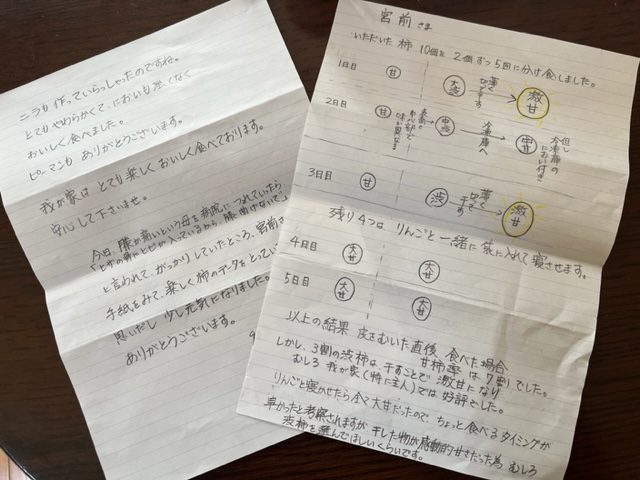 ニラも作っていらっしゃったのですね。
とてもやわらかくて、においも強くなく
おいしく食べました。
ピーマンも ありがとうございます。
我が家は とても楽しく おいしく食べております。
安心して下さいませ。
今日、膝が痛いという母を病院につれていったら、
と言われて がっかりしていたところ、宮前さ
手紙をみて、楽しく柿のデータをとってい
思いだし 少し元気になりました。
ありがとうございます。
宮前さま
いただいた 柿 10個を 2個ずつ 5回に分け食しました。
1日目 甘 大渋 薄く切って干す 激甘
2日目 甘 表面と中心部で味が異なる 中渋 冷凍庫へ 中甘 但し冷凍庫のにおい付き
3日目 甘 渋 薄く干す 激甘
残り4つは りんごと一緒に 袋に入れて 寝させます。
4日目 大甘 大甘
5日目 大甘 大甘
以上の結果 皮をむいた直後 食べた場合
甘柿率は 7割でした。
しかし、3割の渋柿は、干すことで 激甘になり
むしろ 我が家(特に主人)では 好評でした。
りんごと寝かせたら全て大甘だったので、ちょっと食べるタイミングが
早かったと考察されますが 干した物が感動的甘さだった為 むしろ
渋柿を選んでほしいくらいです。